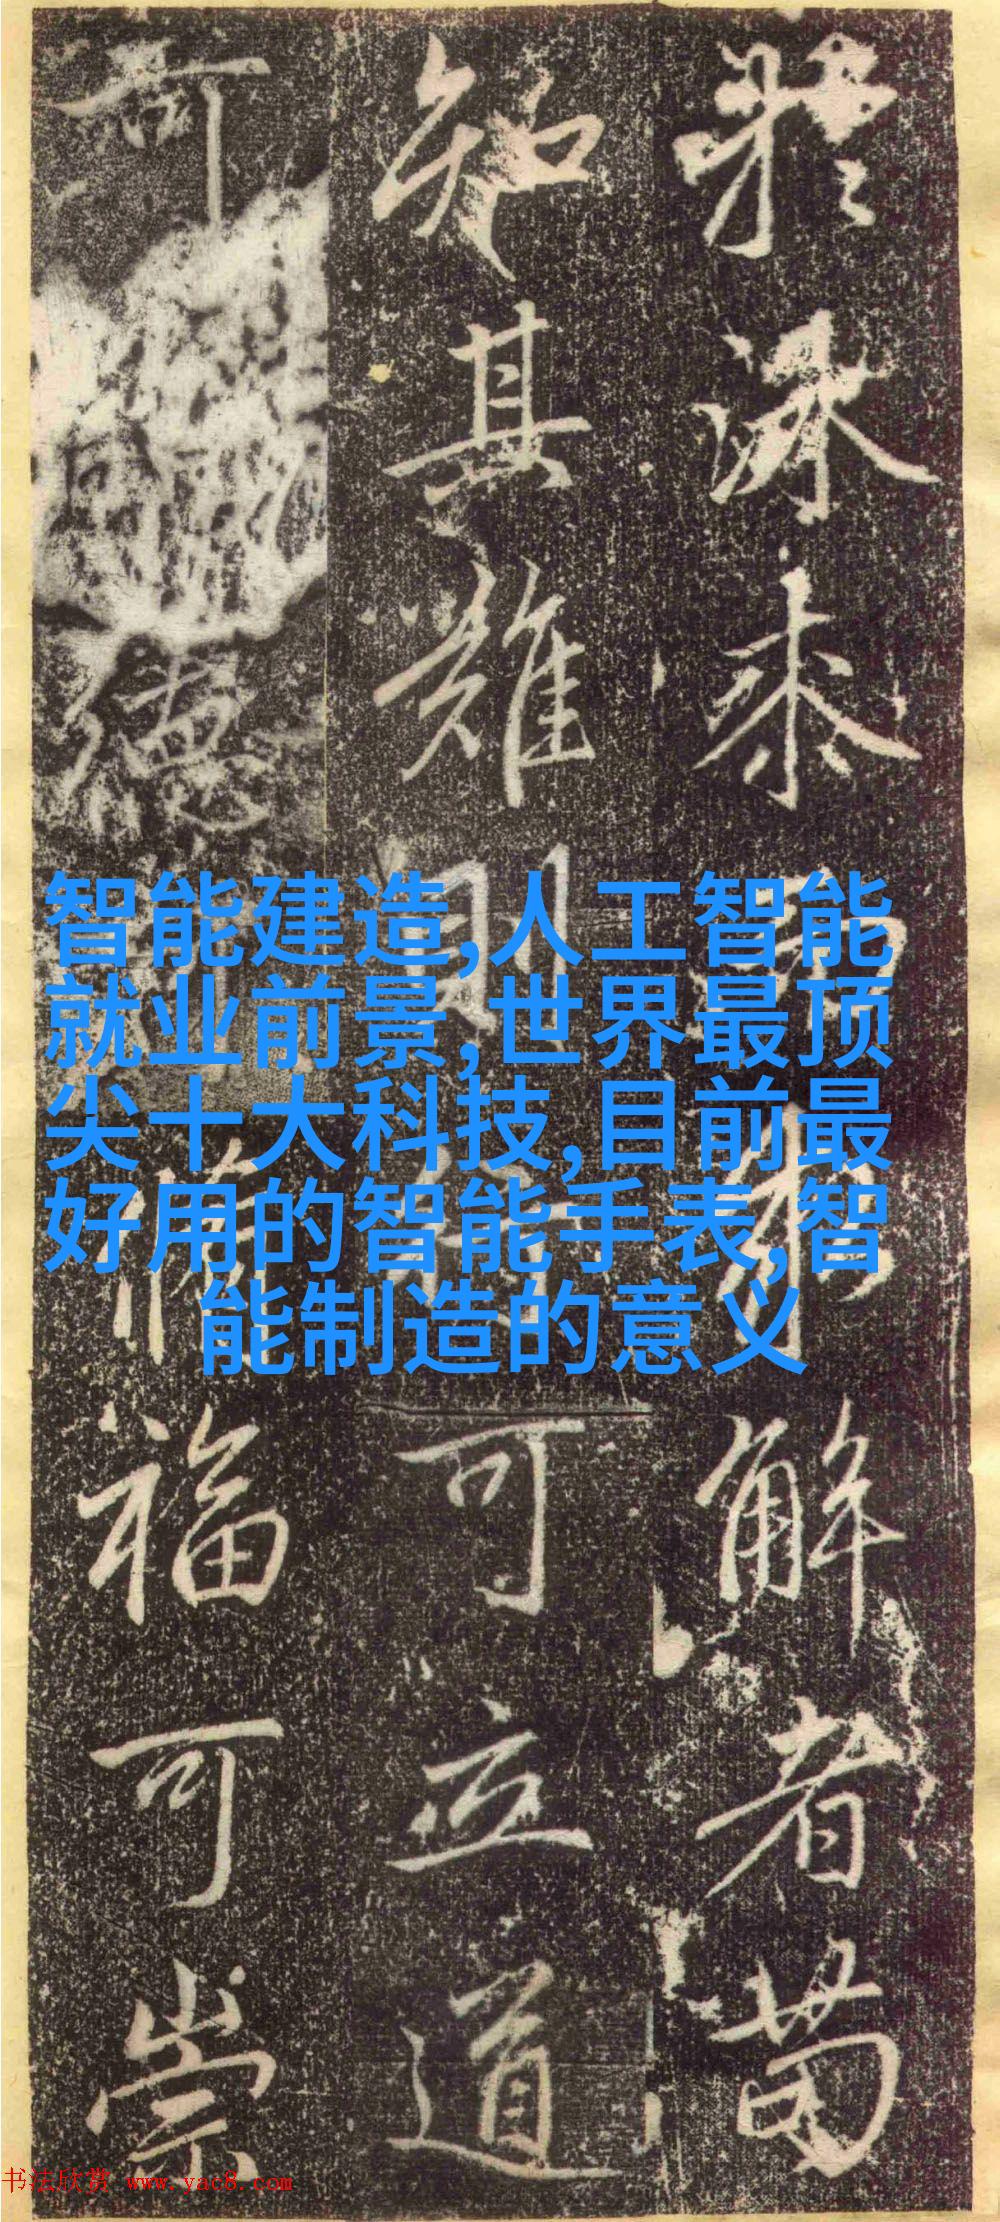 於深求解者苟
知其難則可立道
可德福可崇
智能建造,人工智能
就业前景,世界最顶
尖十大科技,目前最
好用的智能手表,智
能制造的意义
书法欣赏 www.yac8.com